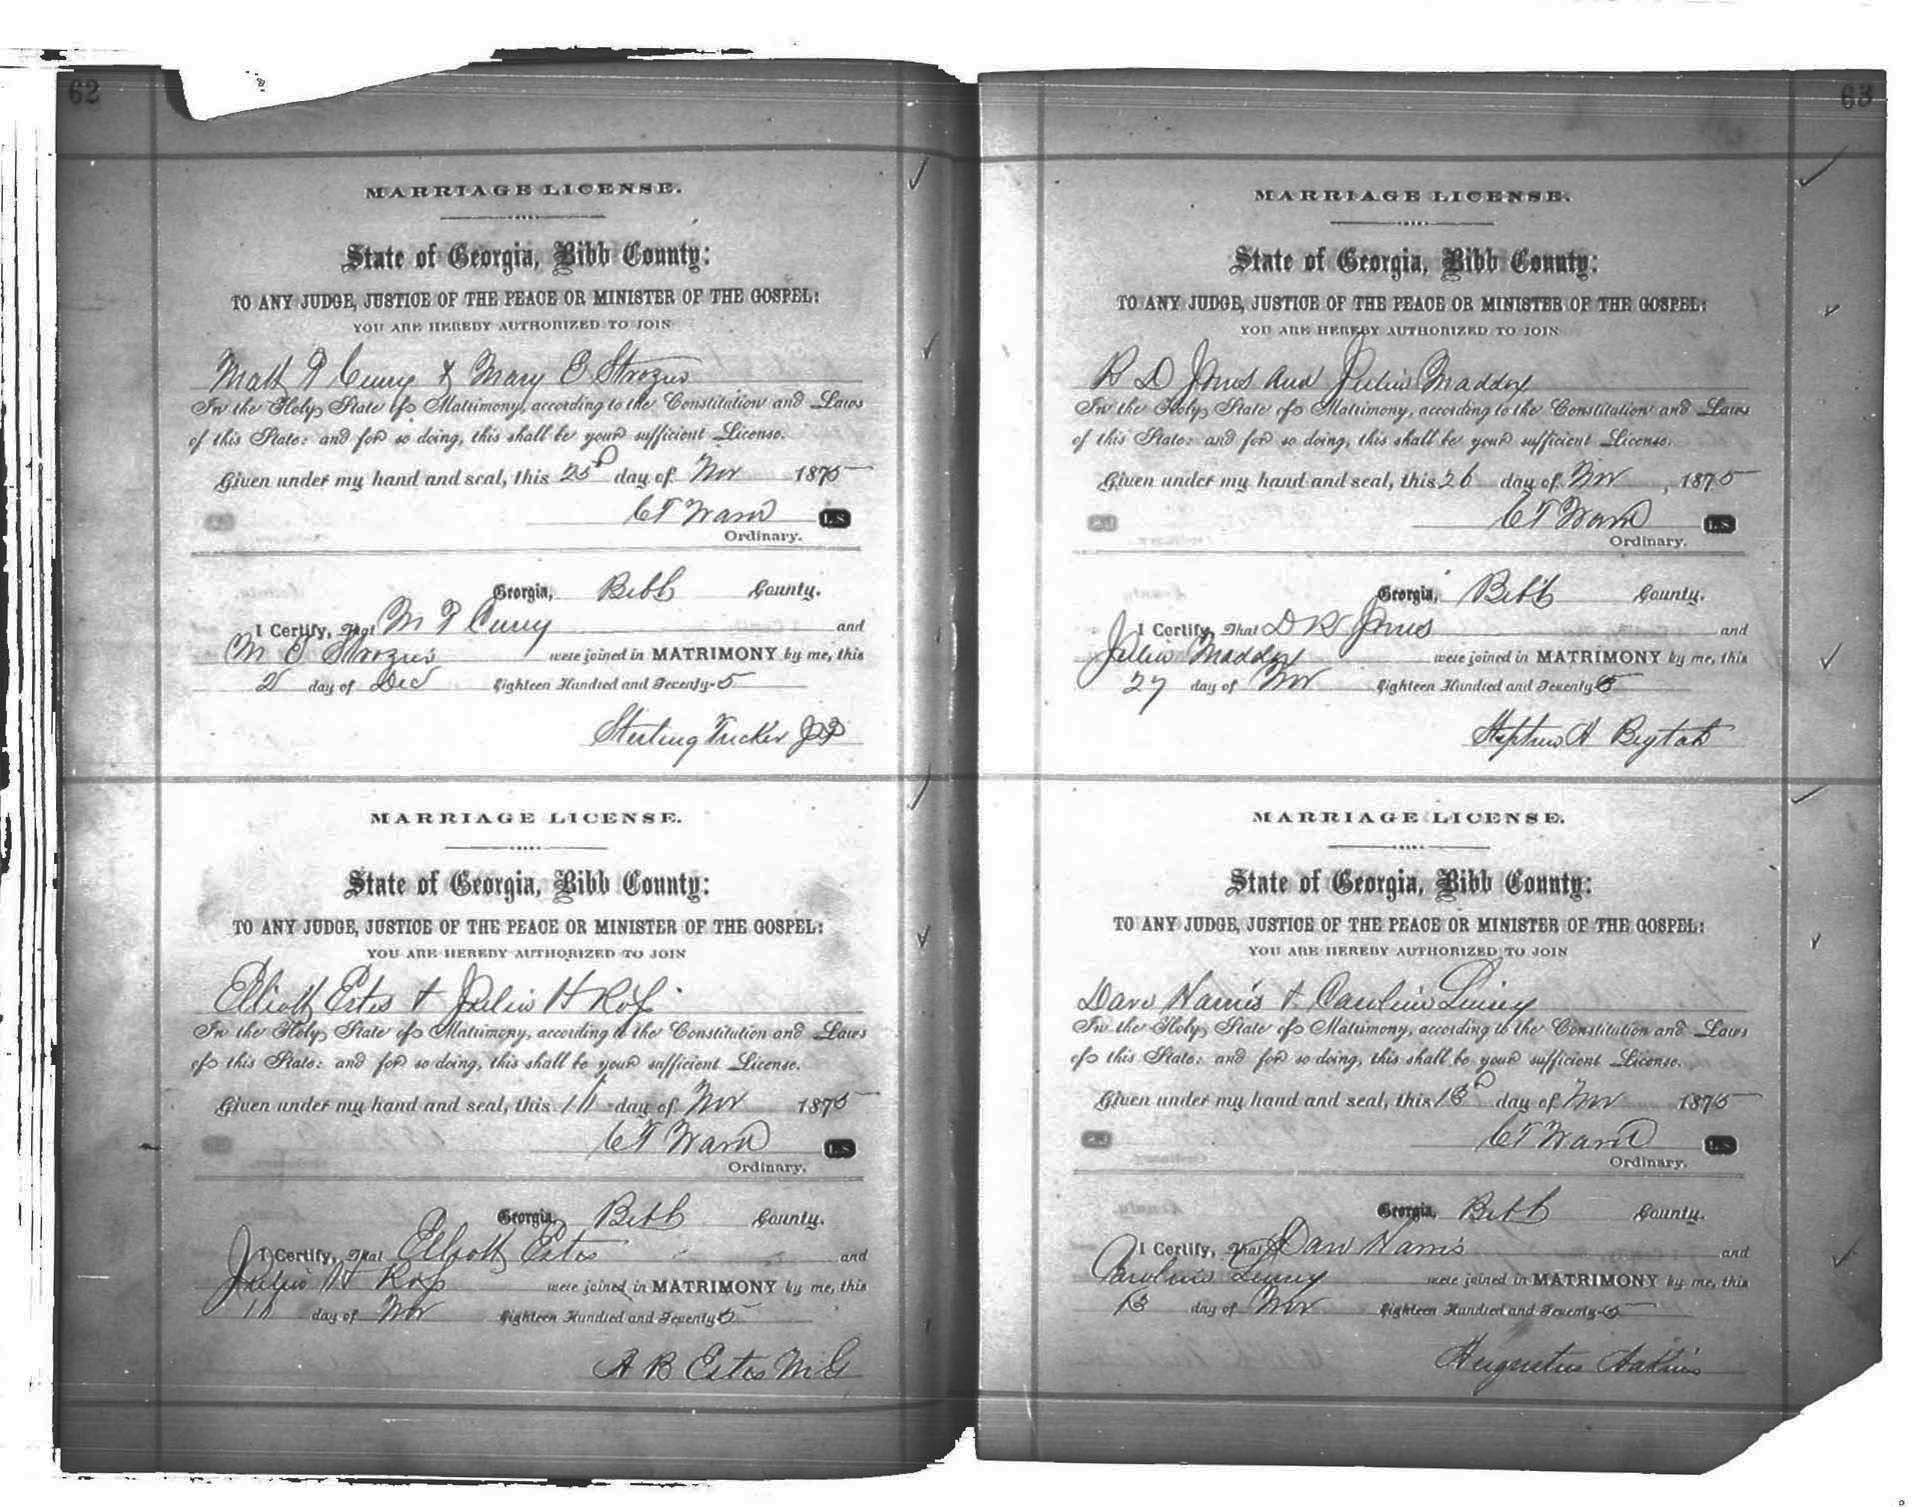 62
MARRIAGE LICENSE.
State of Georgia, Bibb County:
TO ANY JUDGE, JUSTICE OF THE PEACE OR MINISTER OF THE GOSPEL:
YOU ARE HEREBY AUTHORIZED TO JOIN
Matt & Mary E
In the Holy State of Matrimony, according to the Constitution and Laws
of this State: and for so doing, this shall be your sufficient License.
Given under my hand and seal, this 25 day of Nov 1875
C T Ward L.S
Ordinary.
Georgia, Bibb County.
I Certify, That M and
M E were joined in MATRIMONY by me, this
2 day of Dec Eighteen Hundred and Seventy-5
Sterling Tucker J P
MARRIAGE LICENSE.
State of Georgia, Bibb County:
TO ANY JUDGE, JUSTICE OF THE PEACE OR MINISTER OF THE GOSPEL:
YOU ARE HEREBY AUTHORIZED TO JOIN
Elliott Estes & Julia H
In the Holy State of Matrimony, according to the Constitution and Laws
of this State: and for so doing, this shall be your sufficient License.
Given under my hand and seal, this day of Nov 1875
C T Ward L.S
Ordinary.
Georgia, Bibb County.
I Certify, That Elliott Estes and
Julia H were joined in MATRIMONY by me, this
day of Nov Eighteen Hundred and Seventy-5
A B Estes M G
63
MARRIAGE LICENSE.
State of Georgia, Bibb County:
TO ANY JUDGE, JUSTICE OF THE PEACE OR MINISTER OF THE GOSPEL:
YOU ARE HEREBY AUTHORIZED TO JOIN
R D Jones and Julia Maddox
In the Holy State of Matrimony, according to the Constitution and Laws
of this State: and for so doing, this shall be your sufficient License.
Given under my hand and seal, this 26 day of Nov, 1875
C T Ward L.S
Ordinary.
Georgia, Bibb County.
I Certify, That D R Jones and
Julia Maddox were joined in MATRIMONY by me, this
27 day of Nov Eighteen Hundred and Seventy-5
Stephen H
MARRIAGE LICENSE.
State of Georgia, Bibb County:
TO ANY JUDGE, JUSTICE OF THE PEACE OR MINISTER OF THE GOSPEL:
YOU ARE HEREBY AUTHORIZED TO JOIN
Dave Harris & Caroline
In the Holy State of Matrimony, according to the Constitution and Laws
of this State: and for so doing, this shall be your sufficient License.
Given under my hand and seal, this 13 day of Nov 1875
C T Ward L.S
Ordinary.
Georgia, Bibb County.
I Certify, That Dave Harris and
Caroline were joined in MATRIMONY by me, this
13 day of Nov Eighteen Hundred and Seventy-5
Augustus